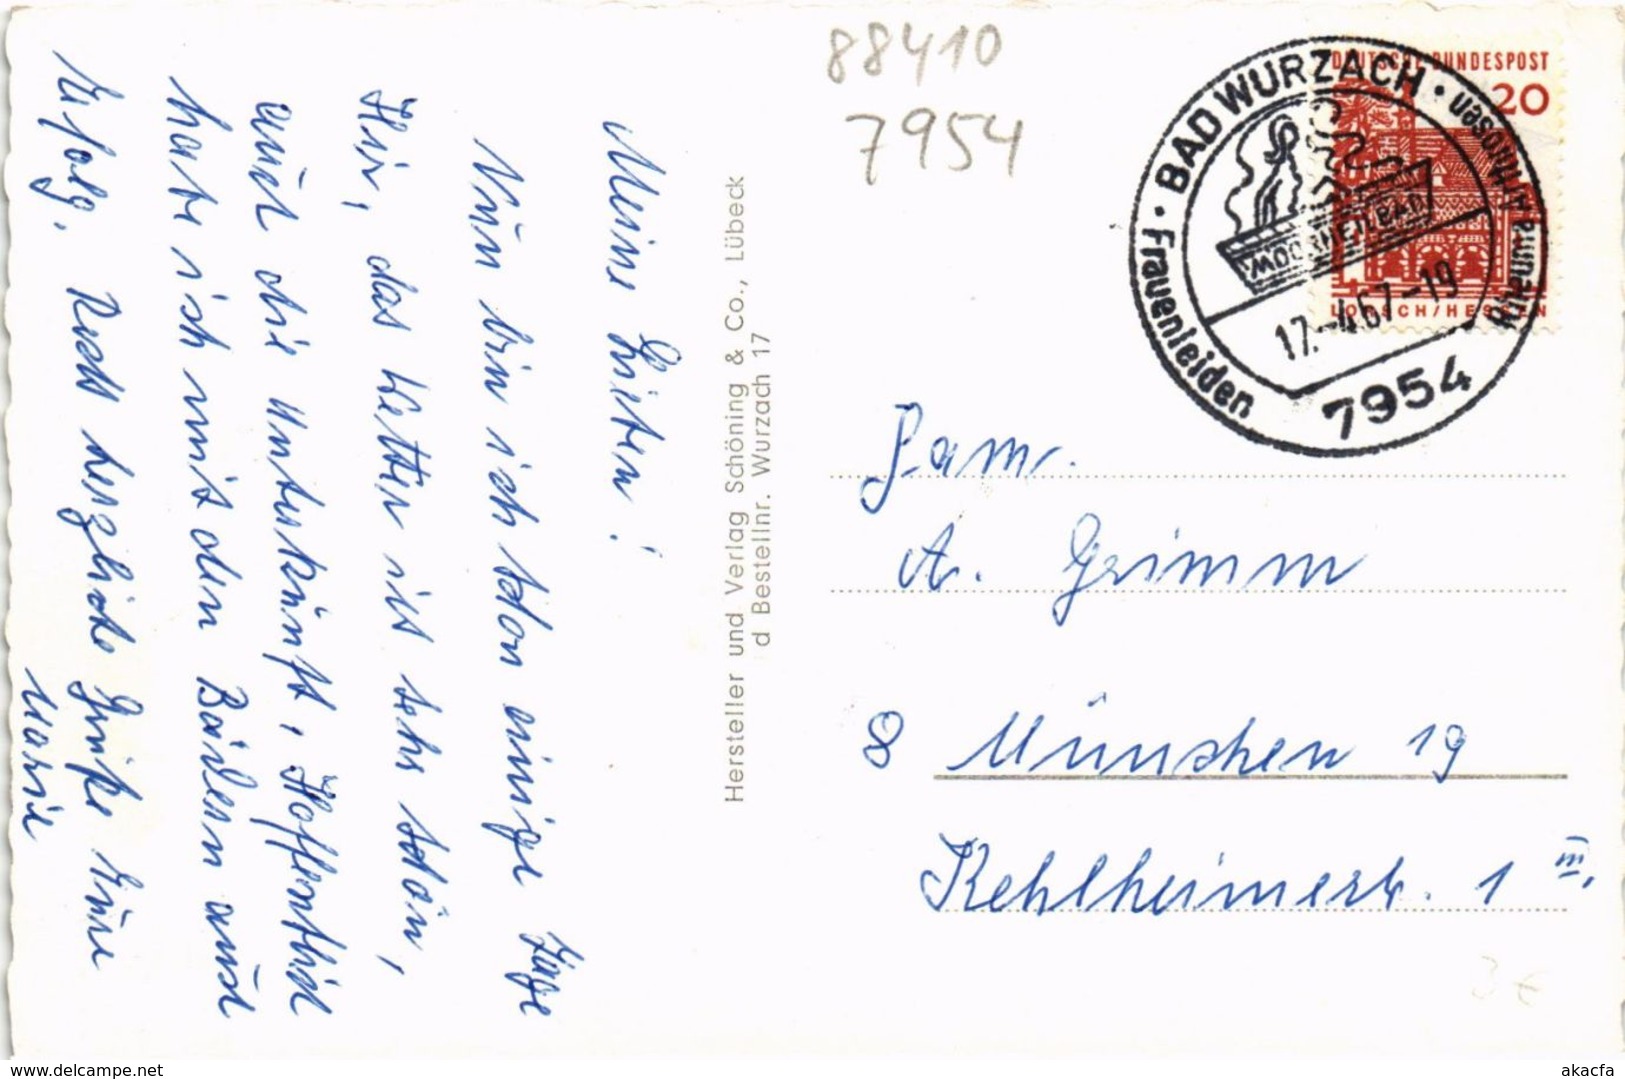 Meine Lieben!
Nun bin ich schon einige Tage
hier, das Wetter ist sehr schön,
auch die Unterkunft, hoffentlich
habe ich mit den Bädern auch
Erfolg. Recht herzliche Grüße Eure
Marie
Hersteller und Verlag Schöning & Co., Lübeck
d Bestellnr. Wurzach 17
88410
7954
DEUTSCHE BUNDESPOST
20
LORSCH/HESSEN
BAD WURZACH
Rheuma Arthrosen
Frauenleiden
MOORHEILBAD
17.-4.67-19
7954
Fam.
A. Grimm
8 München 19
Kehlheimerstr. 1 III.
3 €
www.delcampe.net
akacfa